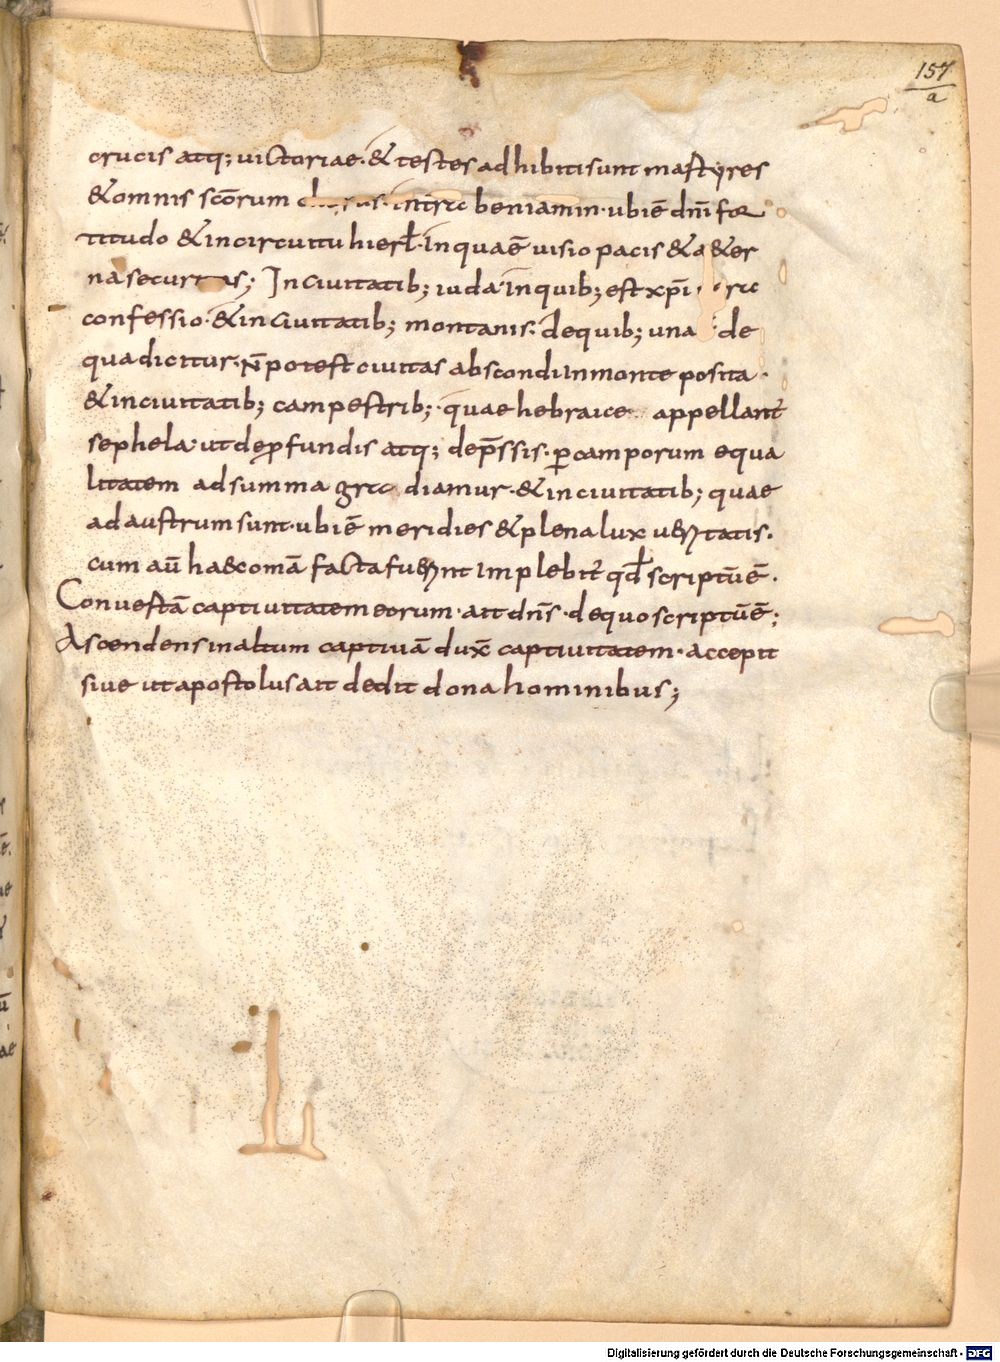 157
a
crucis atq; uictoriae · & testes adhibiti sunt martyres
& omnis scōrum chorus · in terra beniamin · ubi ē dn̄i for
titudo & in circuitu hierł · In qua ē uisio pacis & a&er
na securitas; In ciuitatib; iuda · In quib; est xp̄i
confessio · & in ciuitatib; montanis · de quib; una de
qua dicitur · N̄ potest ciuitas abscondi In monte posita ·
& in ciuitatib; campestrib; · quae hebraice appellant̄
sephela · ut de ꝓfundis atq; dep̄ssis · ꝑ camporum equa
litatem ad summa gradiamur · & in ciuitatib; quae
ad austrum sunt · ubi ē meridies & plena lux ueritatis ·
cum aū haec omā facta fuerint Implebit̄ qđ scriptū ē ·
Conuestā captiuitatem eorum · ait dn̄s · de quo scriptū ē;
Ascendens in altum captiuā dux̄ captiuitatem · accepit
siue ut apostolus ait dedit dona hominibus;
Digitalisierung gefördert durch die Deutsche Forschungsgemeinschaft - DFG